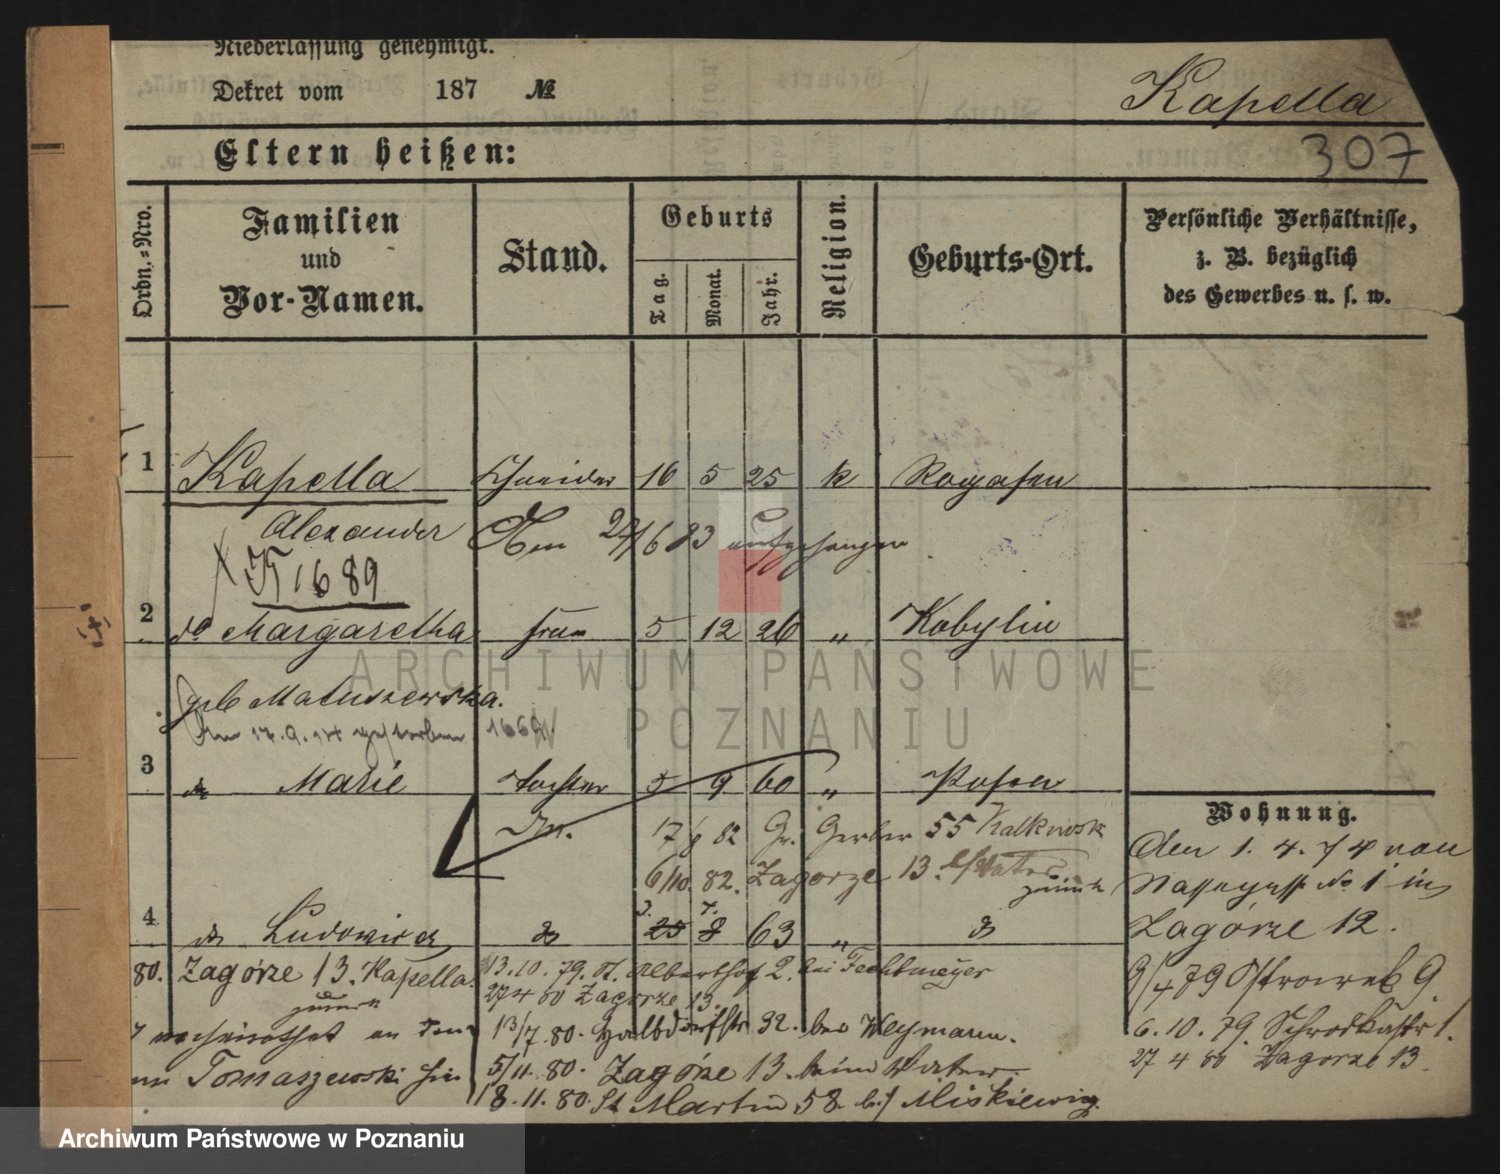 Niederlassung genehmigt.
Dekret vom 187 №
Kapella
307
Eltern heißen:
Ordn.-Nro.
Familien
und
Vor-Namen.
Stand.
Geburts
Tag.
Monat.
Jahr.
Religion.
Geburts-Ort.
Persönliche Verhältnisse,
z. B. bezüglich
des Gewerbes u. s. w.
1 Kapella Schneider 16 5 25 k Rogasen
Alexander
Am 24/6 83 aufgehangen
1689
2 do Margaretha Frau 5 12 26 " Kobylin
geb Matuszewska.
Am 17.9.14 gestorben
3 do Marie Tochter 5 9 60 " Posen
Wohnung.
17/9 82 Gr. Gerber 55
6/10. 82. Zagorze 13. b/Vater
zurück
Den 1. 4. 74 von
No 1 in
Zagórze 12.
4 do Ludowica do 25 8 63 " do
3. 7.
80. Zagórze 13. Kapella.
zurück
13.10.79. Albertshof 2. bei Fechtmeyer
27 4 80 Zagorze 13.
9/4 79 Ostrowek 9
verheirathet an den
13/7. 80. Halbdorfstr 32. bei Weymann.
6. 10. 79. Schrodkastr 1.
Tomaszewski
5/11. 80. Zagórze 13. beim Vater.
27 4 80 Zagorze 13.
18. 11. 80. St Martin 58. b/ Miskiewicz.
ARCHIWUM PAŃSTWOWE
W POZNANIU
Archiwum Państwowe w Poznaniu